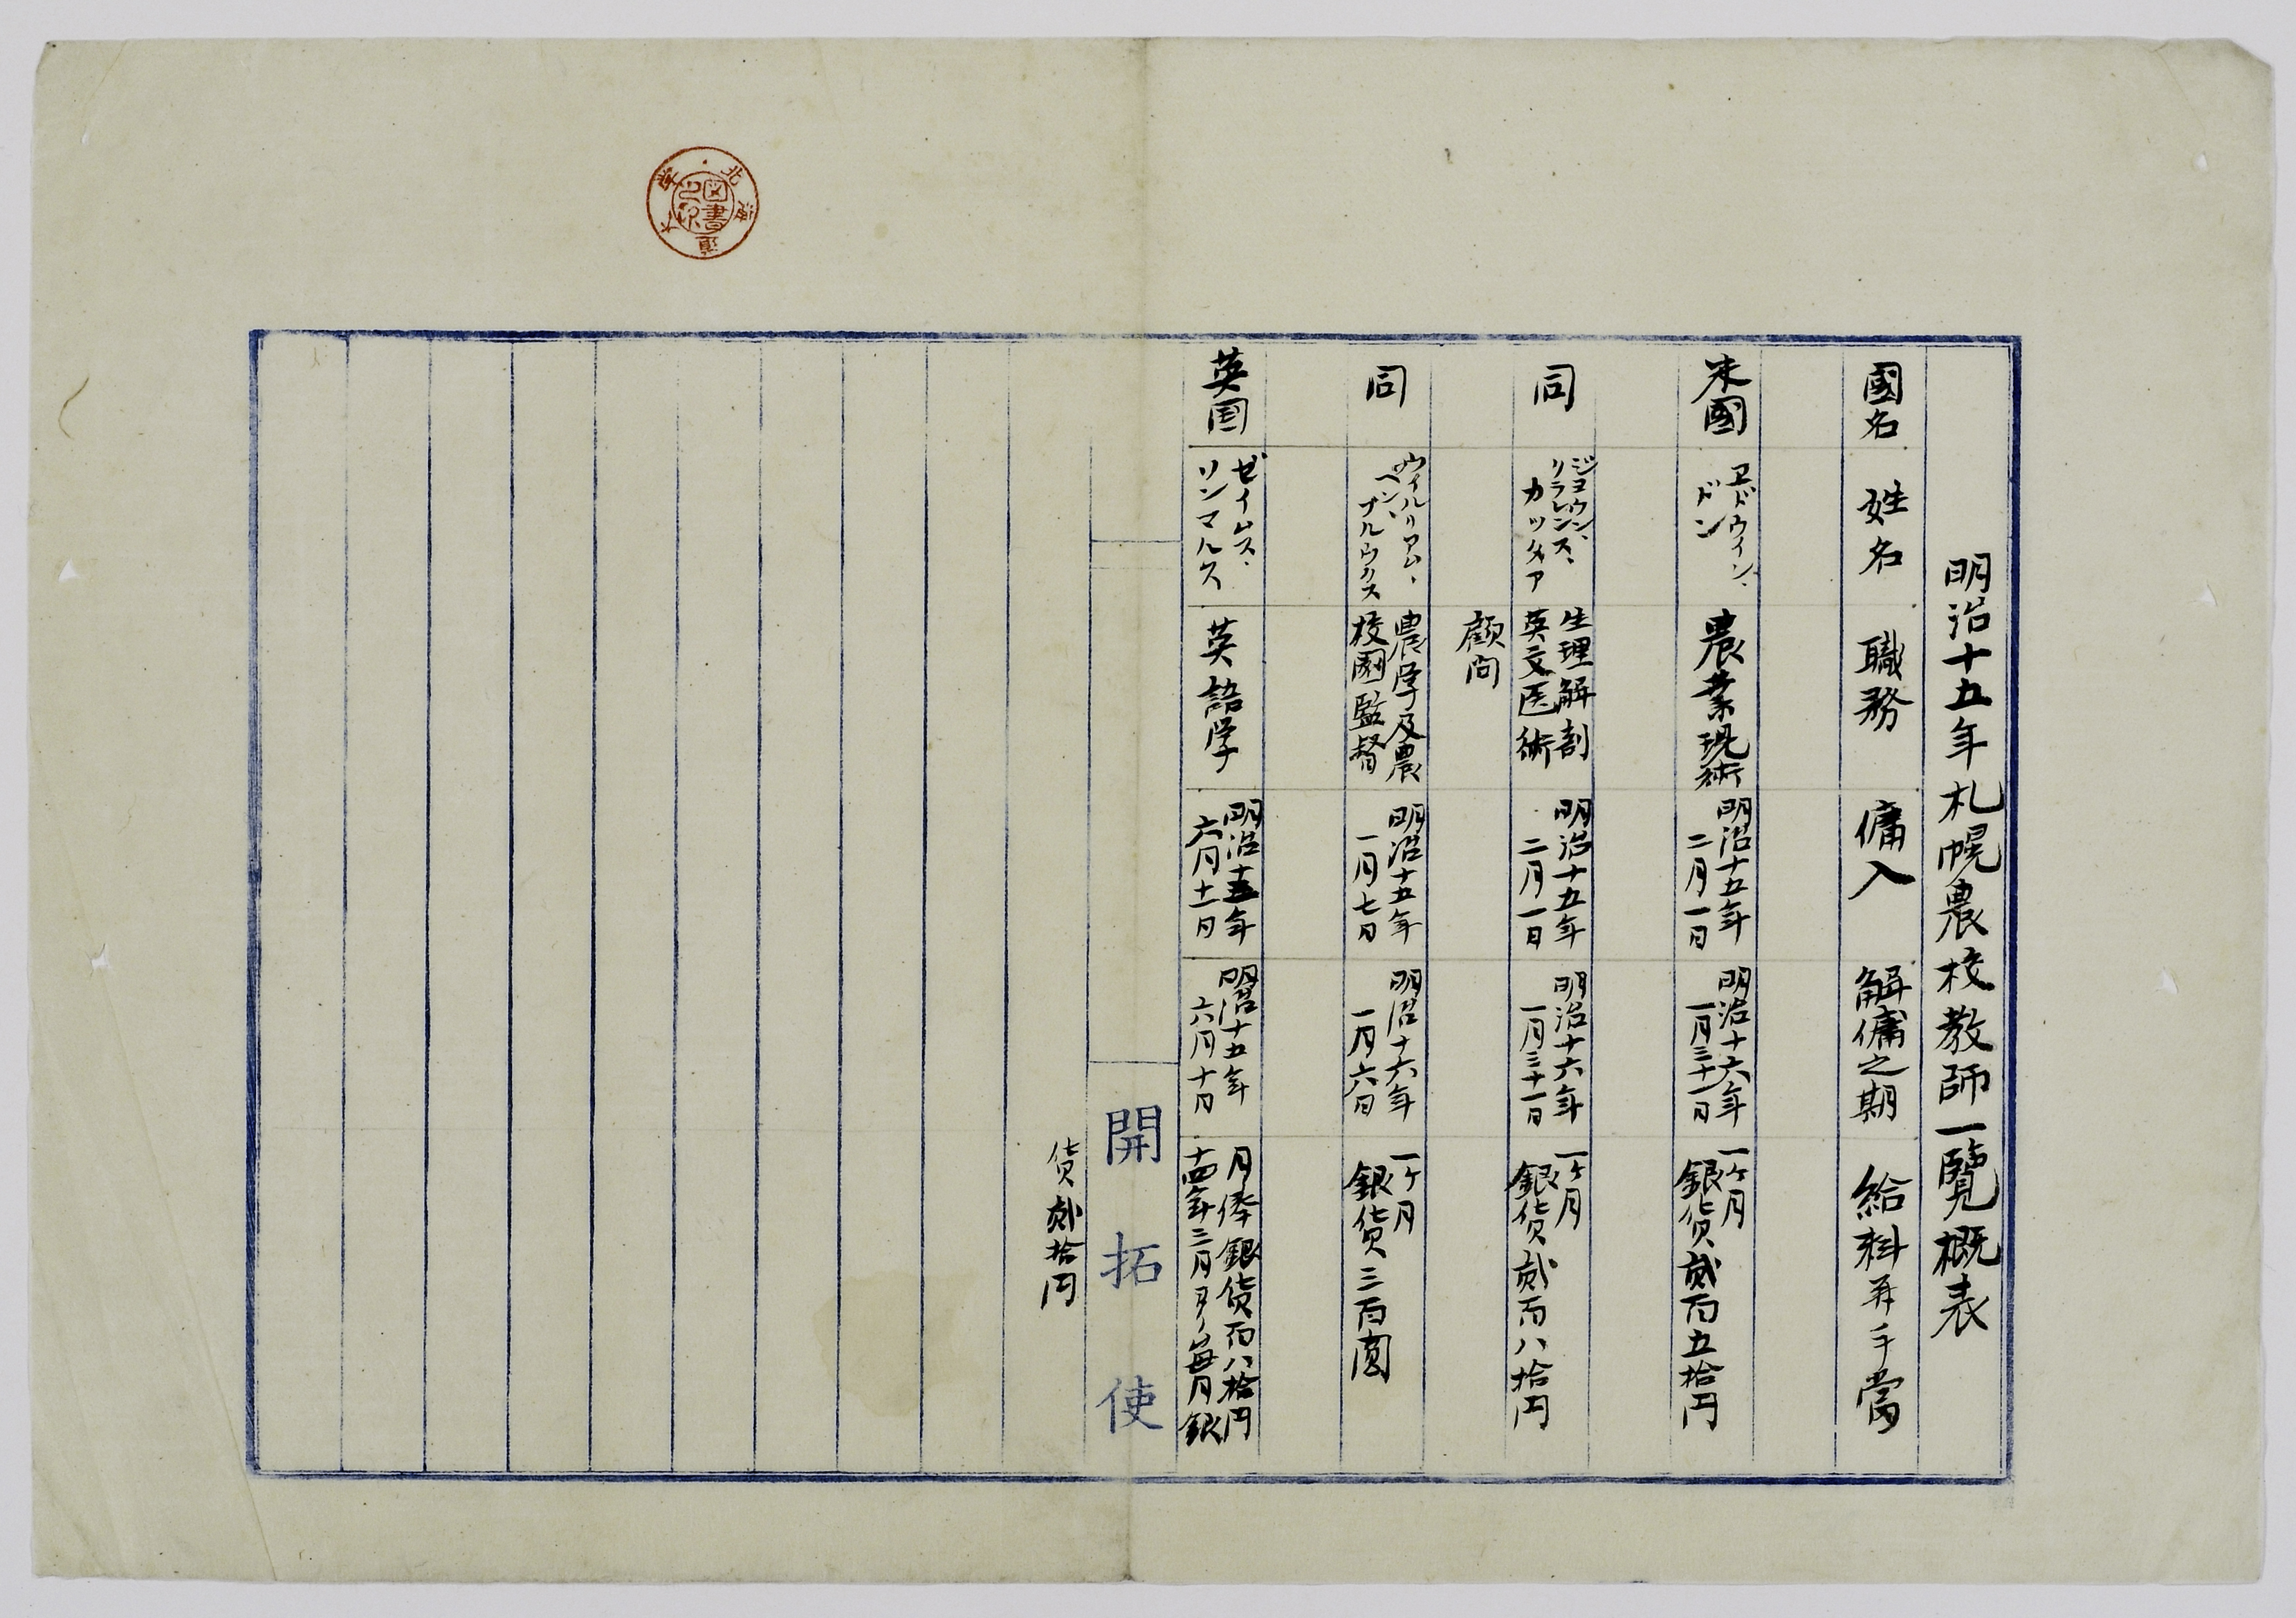 明治十五年札幌農校教師一覧概表
國名 姓名 職務 傭入 解傭之期 給料并手當
米國 エドウイン、ドン 農業現術 明治十五年二月一日 明治十六年一月三十一日 一ケ月銀貨貳百五拾円
同 ジヨウン、クラレンス、カッタア 生理解剖英文医術顧問 明治十五年二月一日 明治十六年一月三十一日 一ケ月銀貨貳百八拾円
同 ウイルリアム、ペン、ブルウクス 農学及農校園監督 明治十五年一月七日 明治十六年一月六日 一ケ月銀貨三百圓
英国 ゼイムス、リンマルス 英語学 明治十五年六月十一日 明治十五年六月十日 月俸銀貨百八拾円十四年三月ヨリ毎月銀貨貳拾円
開拓使
北海道大学
図書之印